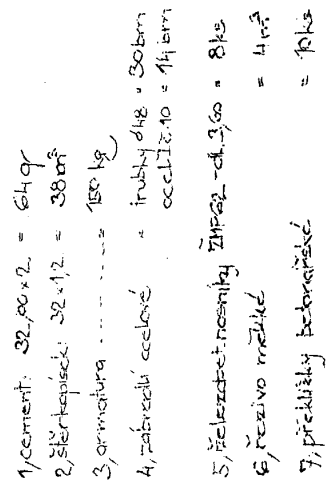 1, cement: 32,00 x 2 = 64 q
2, štěrkopísek: 32 x 1,2 = 38 m³
3, armatura ------ = 150 kg
4, zábradlí ocelové = trubky ø48 = 30 bm
ocel č. 10 = 14 bm
5, železobet. nosníky ŽMP 62 - dl. 3,60 = 8 ks
6, řezivo měkké = 4 m³
7, překližky betonářské = 10 ks